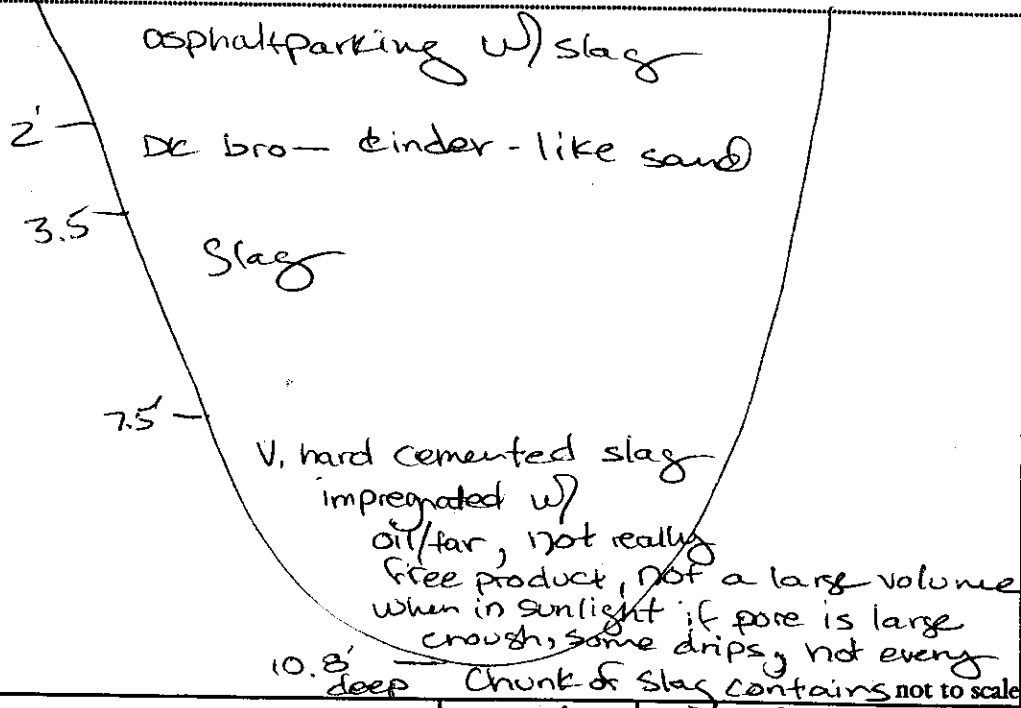 asphalt parking w/ slag
2'
Dk bro— cinder-like sand
3.5
Slag
7.5'
V. hard cemented slag
impregnated w/
oil/tar, not really
free product, not a large volume
when in sunlight if pore is large
enough, some drips, not every
10.8' deep
Chunk of slag contains
not to scale